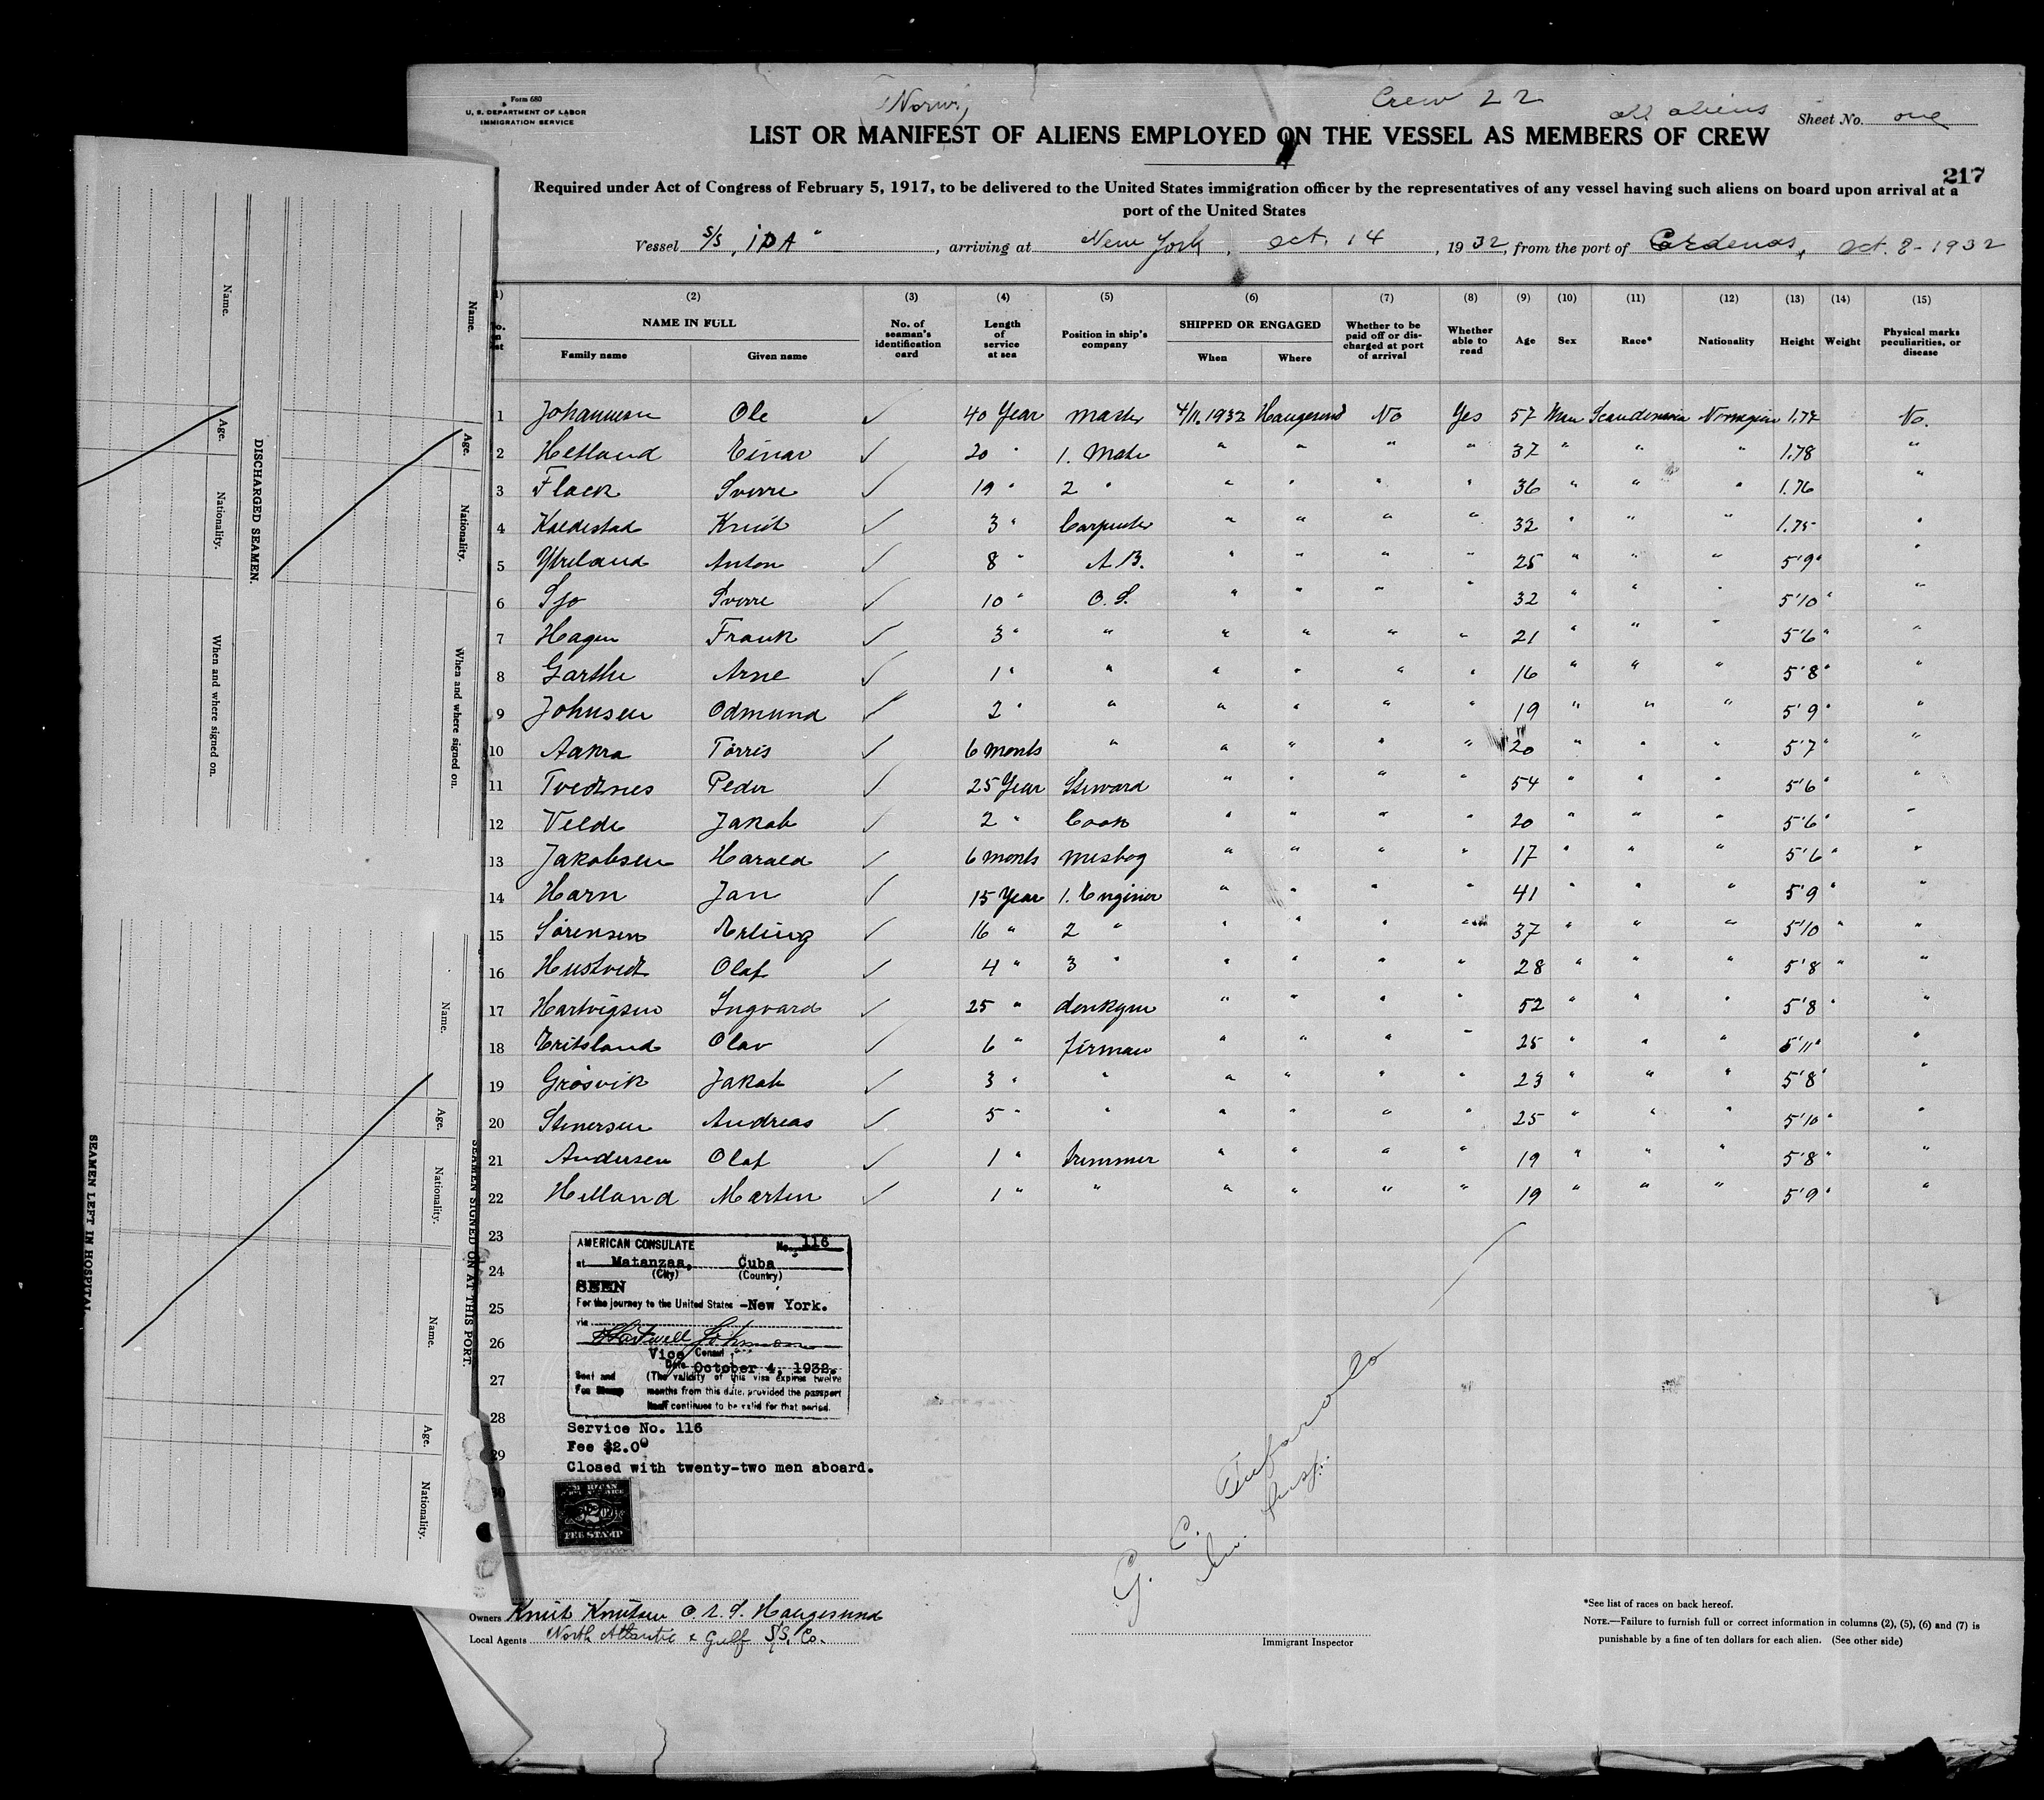 Form 680
U. S. DEPARTMENT OF LABOR
IMMIGRATION SERVICE
(Norw.)
Crew 22
all aliens
Sheet No. one
LIST OR MANIFEST OF ALIENS EMPLOYED ON THE VESSEL AS MEMBERS OF CREW
217
Required under Act of Congress of February 5, 1917, to be delivered to the United States immigration officer by the representatives of any vessel having such aliens on board upon arrival at a
port of the United States
Vessel S/S „IDA" , arriving at New York , Oct. 14 , 1932, from the port of Cardenas, Oct. 8 - 1932
(1) (2) (3) (4) (5) (6) (7) (8) (9) (10) (11) (12) (13) (14) (15)
NAME IN FULL Family name Given name No. of seaman's identification card Length of service at sea Position in ship's company SHIPPED OR ENGAGED When Where Whether to be paid off or discharged at port of arrival Whether able to read Age Sex Race* Nationality Height Weight Physical marks peculiarities, or disease
1 Johannesen Ole ✓ 40 Year Master 4/11.1932 Haugesund No Yes 57 Man Scandinavia Norwegian 1.74 No.
2 Hetland Einar ✓ 20 " 1. Mate " " " " 37 " " " 1.78 "
3 Flack Sverre ✓ 19 " 2 " " " " " 36 " " " 1.76 "
4 Kaldestad Knut ✓ 3 " Carpenter " " " " 32 " " " 1.75 "
5 Ytreland Anton ✓ 8 " A B. " " " " 25 " " " 5'9" "
6 Sjo Sverre ✓ 10 " O. S. " " " " 32 " " " 5'10" "
7 Hagen Frank ✓ 3 " " " " " " 21 " " " 5'6" "
8 Garthe Arne ✓ 1 " " " " " " 16 " " " 5'8" "
9 Johnsen Odmund ✓ 2 " " " " " " 19 " " " 5'9" "
10 Aakra Torris ✓ 6 monts " " " " " 20 " " " 5'7" "
11 Tveitnes Peder ✓ 25 Year Steward " " " " 54 " " " 5'6" "
12 Velde Jakob ✓ 2 " Cook " " " " 20 " " " 5'6" "
13 Jakobsen Harald ✓ 6 monts mesbog " " " " 17 " " " 5'6" "
14 Harn Jan ✓ 15 Year 1. Enginer " " " " 41 " " " 5'9" "
15 Sørensen Erling ✓ 16 " 2 " " " " " 37 " " " 5'10" "
16 Hustvedt Olaf ✓ 4 " 3 " " " " " 28 " " " 5'8" "
17 Hartvigsen Ingvard ✓ 25 " donkym " " " " 52 " " " 5'8" "
18 Eritsland Olav ✓ 6 " firman " " " " 25 " " " 5'11" "
19 Grøsvik Jakob ✓ 3 " " " " " " 23 " " " 5'8" "
20 Stenersen Andreas ✓ 5 " " " " " " 25 " " " 5'10" "
21 Andersen Olaf ✓ 1 " trimmer " " " " 19 " " " 5'8" "
22 Helland Martin ✓ 1 " " " " " " 19 " " " 5'9" "
23
24
25
26
27
28
29
30
AMERICAN CONSULATE No. 116
at Matanzas, Cuba
(City) (Country)
SEEN
For the journey to the United States -New York.
via
Hartwell Johnson
Vice Consul
Date October 4, 1932.
Seal and (The validity of this visa expires twelve
Fee Stamp months from this date, provided the passport
itself continues to be valid for that period.
Service No. 116
Fee $2.00
Closed with twenty-two men aboard.
AMERICAN
$2.00
FEE STAMP
G. C.
Im. Insp.
Owners Knut Knutsen O. A. S. Haugesund
Local Agents North Atlantic & Gulf S/S. Co.
Immigrant Inspector
*See list of races on back hereof.
NOTE.—Failure to furnish full or correct information in columns (2), (5), (6) and (7) is
punishable by a fine of ten dollars for each alien. (See other side)
DISCHARGED SEAMEN.
Name. Age. Nationality. When and where signed on.
Name. Age. Nationality. When and where signed on.
SEAMEN SIGNED ON AT THIS PORT.
Name. Age. Nationality. Name. Age. Nationality.
SEAMEN LEFT IN HOSPITAL